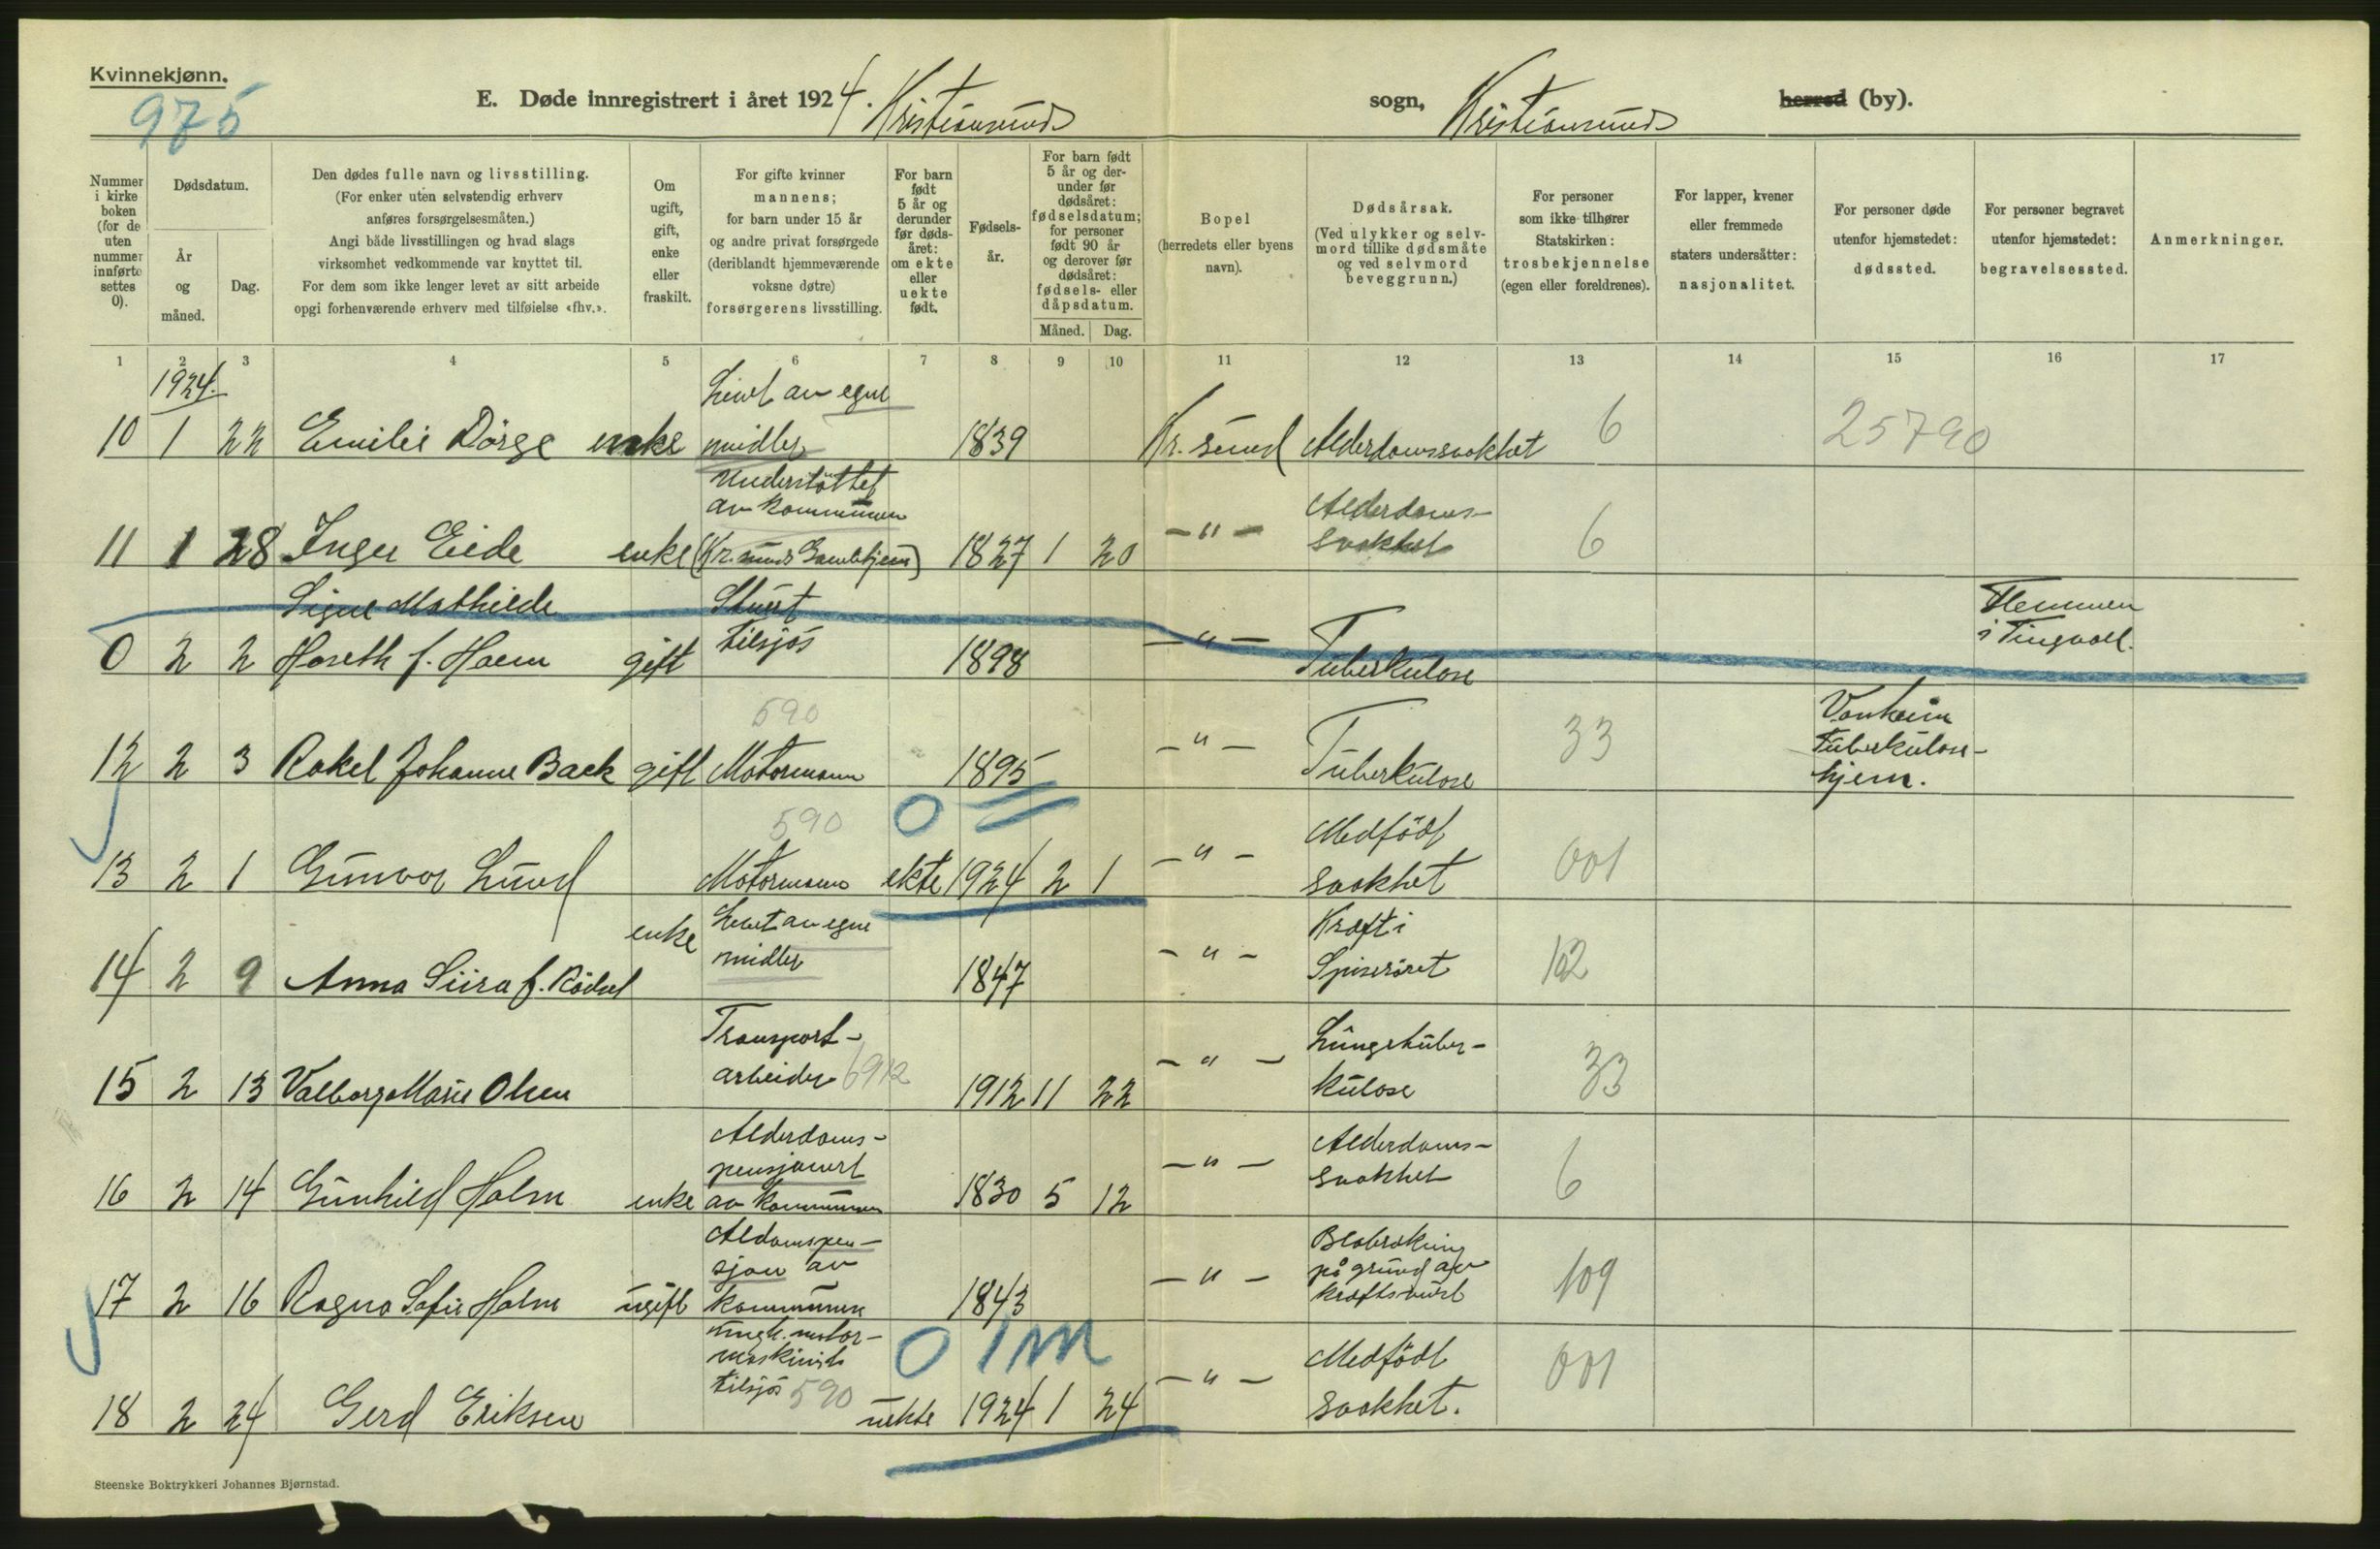 Kvinnekjønn.
975
E. Døde innregistrert i året 1924. Kristiansund sogn, Kristiansund herred (by).
Nummer i kirke boken (for de uten nummer innførte settes 0).
Dødsdatum.
År og måned.
Dag.
Den dødes fulle navn og livsstilling.
(For enker uten selvstendig erhverv
anføres forsørgelsesmåten.)
Angi både livsstillingen og hvad slags
virksomhet vedkommende var knyttet til.
For dem som ikke lenger levet av sitt arbeide
opgi forhenværende erhverv med tilføielse «fhv.».
Om ugift, gift, enke eller fraskilt.
For gifte kvinner
mannens;
for barn under 15 år
og andre privat forsørgede
(deriblandt hjemmeværende
voksne døtre)
forsørgerens livsstilling.
For barn født 5 år og derunder før dødsåret: om ekte eller uekte født.
Fødselsår.
For barn født 5 år og derunder før dødsåret: fødselsdatum; for personer født 90 år og derover før dødsåret: fødsels- eller dåpsdatum.
Måned. Dag.
Bopel
(herredets eller byens
navn).
Dødsårsak.
(Ved ulykker og selvmord tillike dødsmåte
og ved selvmord
beveggrunn.)
For personer
som ikke tilhører
Statskirken:
trosbekjennelse
(egen eller foreldrenes).
For lapper, kvener
eller fremmede
staters undersåtter:
nasjonalitet.
For personer døde
utenfor hjemstedet:
dødssted.
For personer begravet
utenfor hjemstedet:
begravelsessted.
Anmerkninger.
1 2 3 4 5 6 7 8 9 10 11 12 13 14 15 16 17
1924.
10 1 22 Emilie Dörge enke Levet av egne midler 1839 Kr.sund Alderdomssvakhet 6 25790
11 1 28 Inger Eide enke Understöttet av kommunen (Kr.sunds Gamlehjem) 1827 1 20 -"- Alderdoms-svakhet 6
0 2 2 Signe Mathilde Hoseth f. Haem gift Stuert tilsjös 1898 -"- Tuberkulose Flemmen i Tingvoll.
12 2 3 Rakel Johanne Back gift 590 Motormann 1895 -"- Tuberkulose 33 Vonheim Tuberkulose-hjem.
13 2 1 Gunvor Lund 590 Motormann 0 ekte 1924 2 1 -"- Medfödt svakhet 001
14 2 9 Anna Siira f. Rödsel enke Levet av egne midler 1847 -"- Kræft i Spiseröret 102
15 2 13 Valborg Marie Olsen Transport-arbeider 6912 1912 11 22 -"- Lungetuber-kulose 33
16 2 14 Gunhild Holm enke Alderdoms-pensjonert av kommunen 1830 5 12 -"- Alderdoms-svakhet 6
17 2 16 Ragna Sofie Holm ugift Aldomspen-sjon av kommunen 1843 -"- på grund av 109
18 2 24 Gerd Eriksen ungk. motor-maskinist tilsjös 590 0 1m uekte 1924 1 24 -"- Medfödt svakhet. 001
Steenske Boktrykkeri Johannes Bjørnstad.